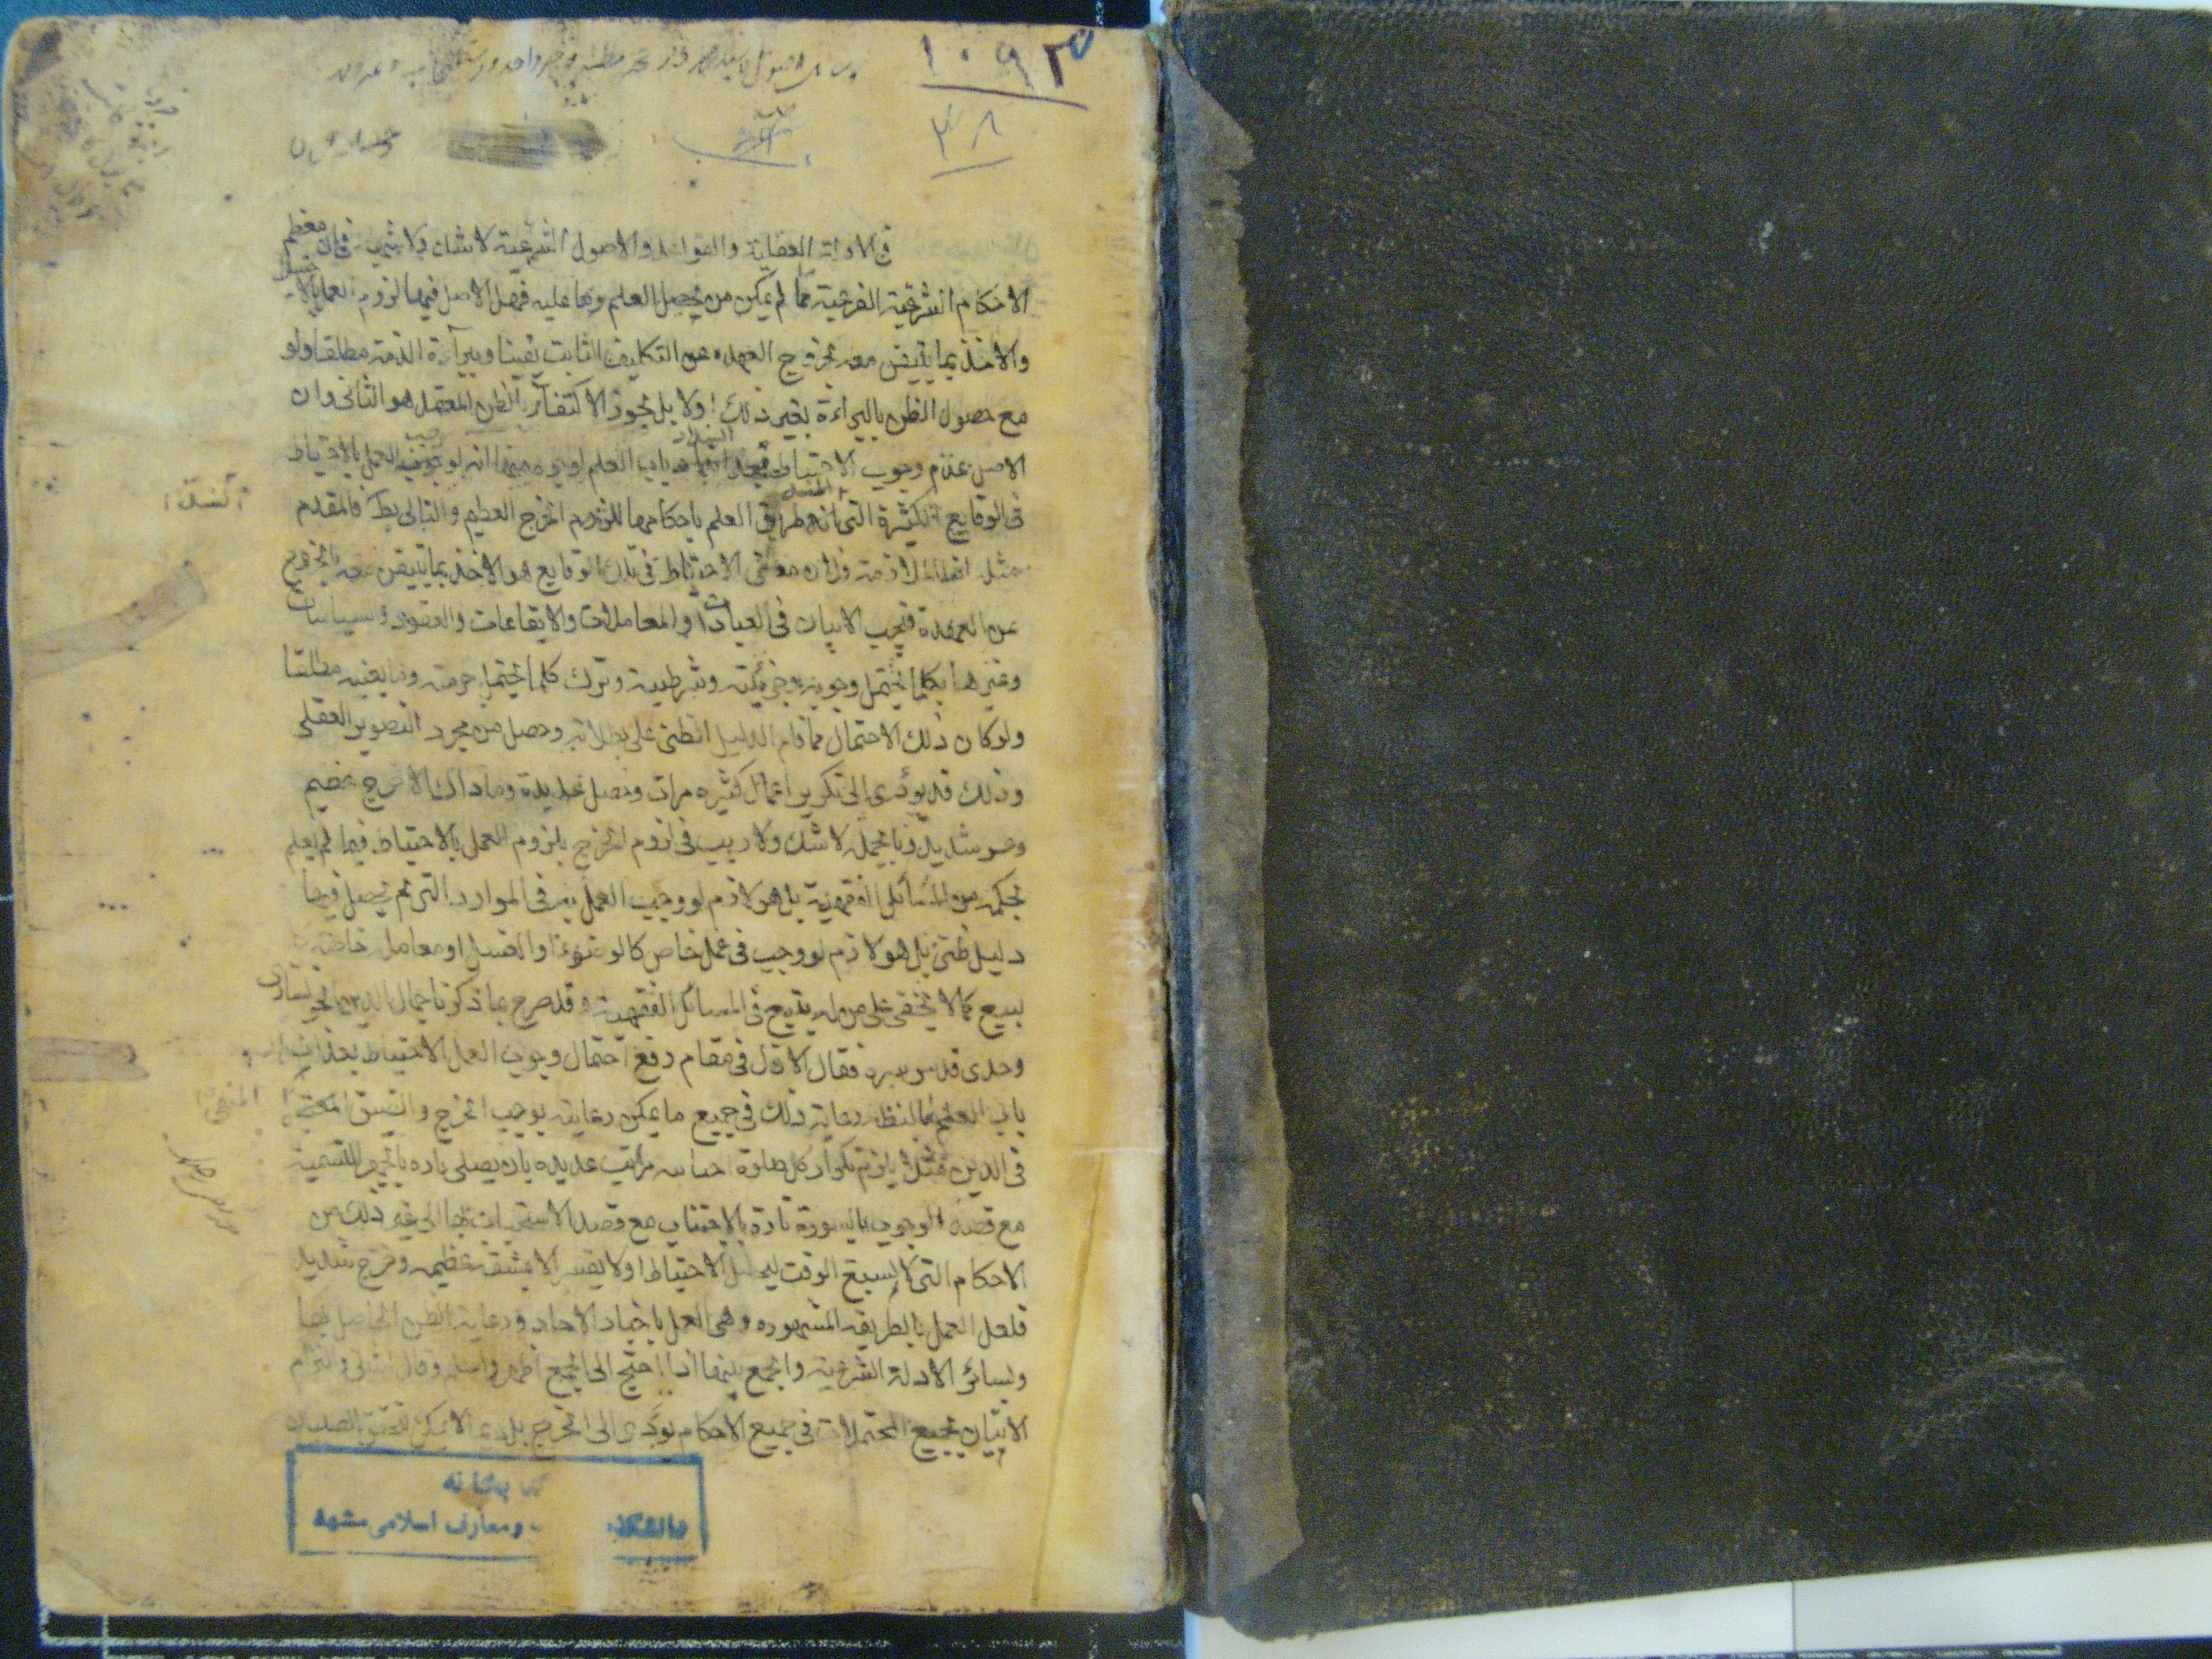 ۱۰۹۳۷
۳۸
في الادلة العقلية والقواعد والاصول الشرعية لا شك ولا شبهة في ان معظم
الاحكام الشرعية الفرعية مما لم يمكن من تحصيل العلم بها عليه فهل الاصل فيها لزوم العمل بالاحتياط
والاخذ بما يتيقن معه بخروج العهده عن التكليف الثابت يقينا وببرآءة الذمة مطلقا ولو
مع حصول الظن بالبراءة بغير ذلك اولا بل يجوز الاكتفاء بالظن المعتمد هو الثاني وان
الاصل عدم وجوب الاحتياط بعد انسداد باب العلم لوجوه منها انه لو وجب العمل بالاحتياط
في الوقايع الكثيرة التي انسد طريق العلم باحكامها للزم الحرج العظيم والتالي بط فالمقدم
مثله اما الملازمة فلان معنى الاحتياط في تلك الوقايع هو الاخذ بما يتيقن معه الخروج
عن العهدة فيجب الاتيان في العبادات والمعاملات والايقاعات والعقود والسياسات
وغيرها بكلما يحتمل وجوبه وجزئيته وشرطيته وترك كلما يحتمل حرمته ومانعيته مطلقا
ولو كان ذلك الاحتمال مما قام الدليل الظني على بطلانه وحصل من مجرد التصوير العقلي
وذلك قد يؤدى الى تكرير اعمال كثيره مرات عديدة وما ذاك الا حرج عظيم
وعسر شديد وبالجملة لا شك ولا ريب في لزوم الحرج بلزوم العمل بالاحتياط فيما لم يعلم
بحكمه من المسائل الفقهية بل هو لازم لو وجب العمل به في الموارد التي لم يحصل فيها
دليل ظني بل هو لازم لو وجب في عمل خاص كالوضوء او الغسل او معاملة خاصة
كبيع كما لا يخفى على من له تتبع في المسائل الفقهية وقد صرح بما ذكرنا جمال الدين الخونساري
وجدى قدس سره فقال الاول في مقام دفع احتمال وجوب العمل بالاحتياط بعد انسداد
باب العلم بما لفظه رعاية ذلك في جميع ما يمكن رعايته يوجب الحرج والضيق المنفي
في الدين مثلا يلزم تكرار كل صلوة احيانا مراتب عديده بان يصلى تاره بالجهر بالتسمية
مع قصد الوجوب بالسورة تارة بالاجتناب مع قصد الاستحباب بها الى غير ذلك من
الاحكام التي لا يسع الوقت ليحصل الاحتياط او لا يتيسر الا بمشقة عظيمه وحرج شديد
فلعل العمل بالطريقه المشهوره وهي العمل باخبار الاحاد ورعاية الظن الحاصل بها
وبسائر الادلة الشرعية والجمع بينها اذا احتج الى الجمع اظهر واسلم وقال الثاني والتزام
الاتيان بجميع المحتملات في جميع الاحكام يؤدى الى الحرج بل
كتابخانه
دانشكده ومعارف اسلامى مشهد